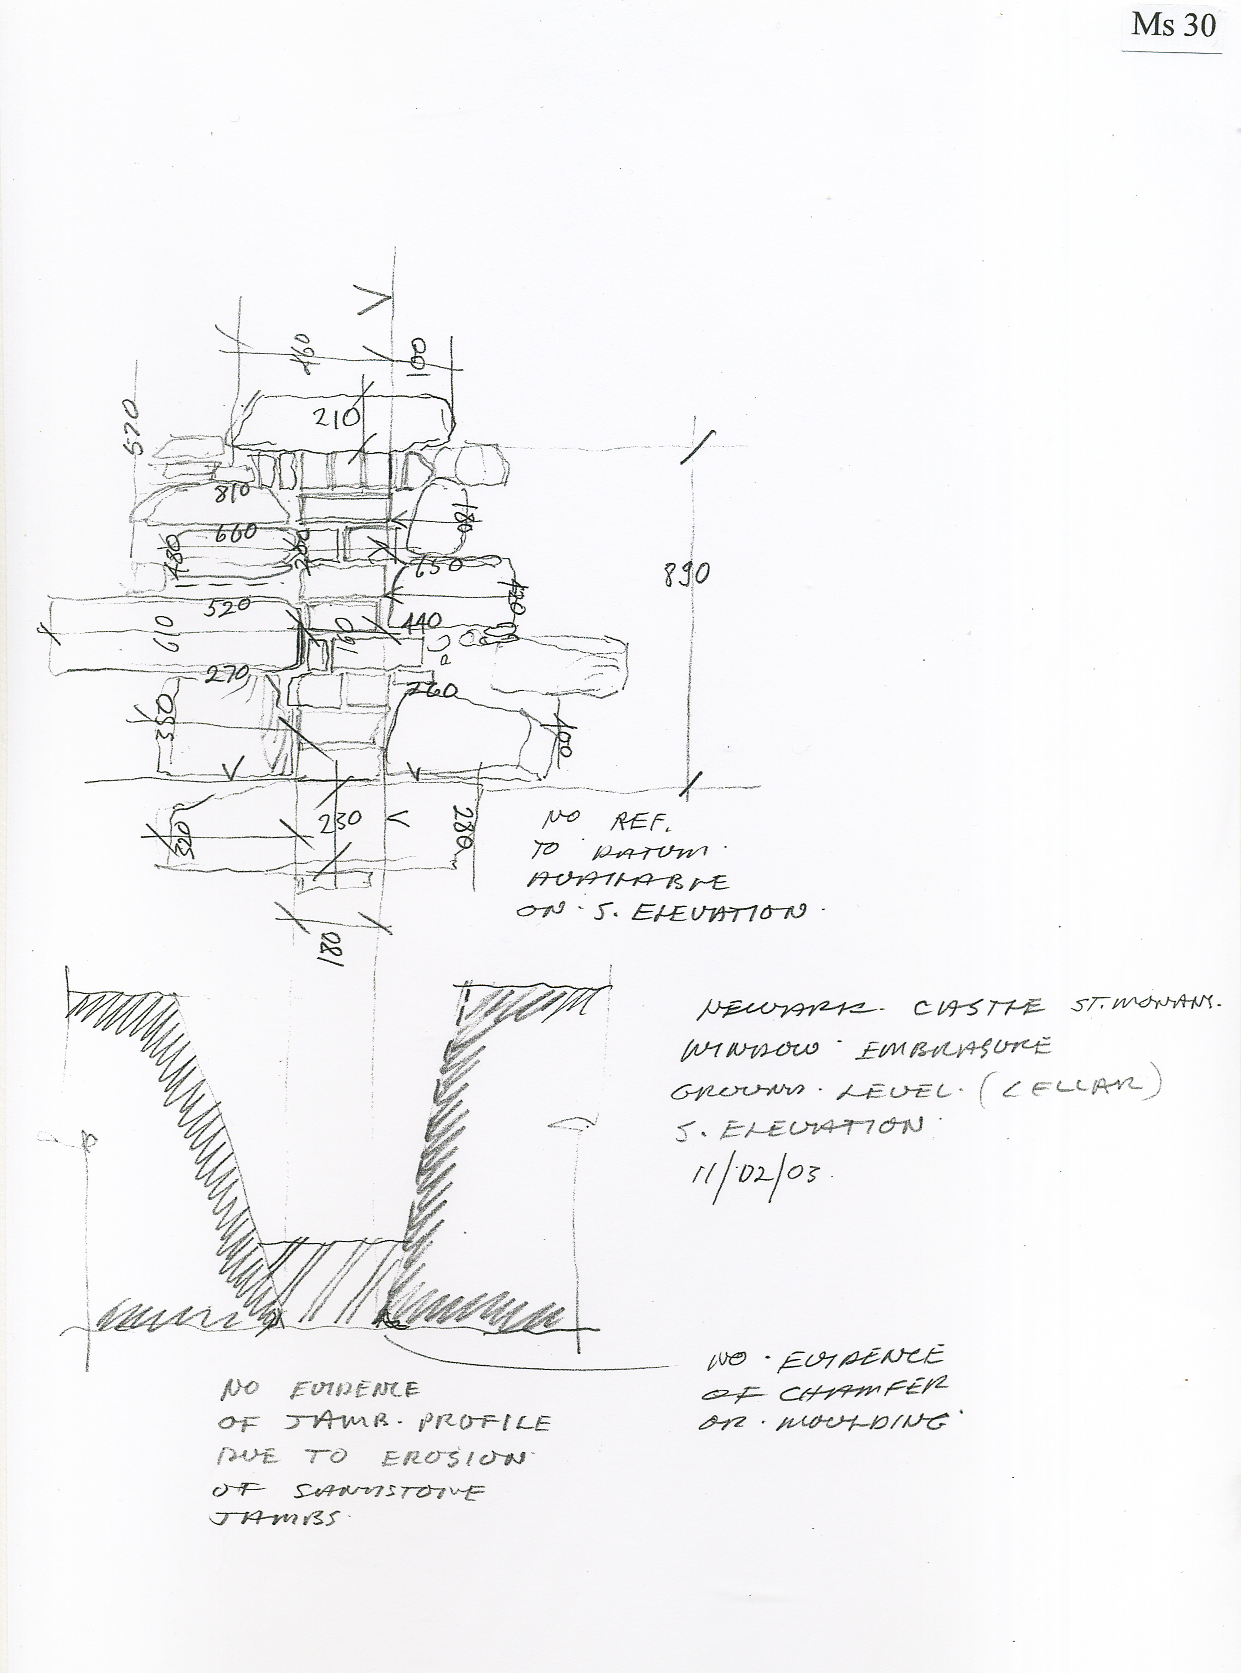 Ms 30
460
100
210
570
810
180
660
480
650
520
610
160
440
270
260
350
400
890
230
280
320
180
NO REF.
TO DATUM.
AVAILABLE
ON. S. ELEVATION.
NEWARK. CASTLE ST. MONANS.
WINDOW EMBRASURE
GROUND. LEVEL. (CELLAR)
S. ELEVATION
11/02/03.
NO. EVIDENCE
OF CHAMFER
OR. MOULDING
NO EVIDENCE
OF JAMB. PROFILE
DUE TO EROSION
OF SANDSTONE
JAMBS.